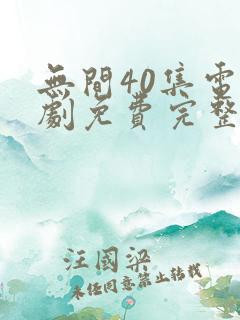 無間40集電
劇免費完整
汪國梁
未任同意禁止转载